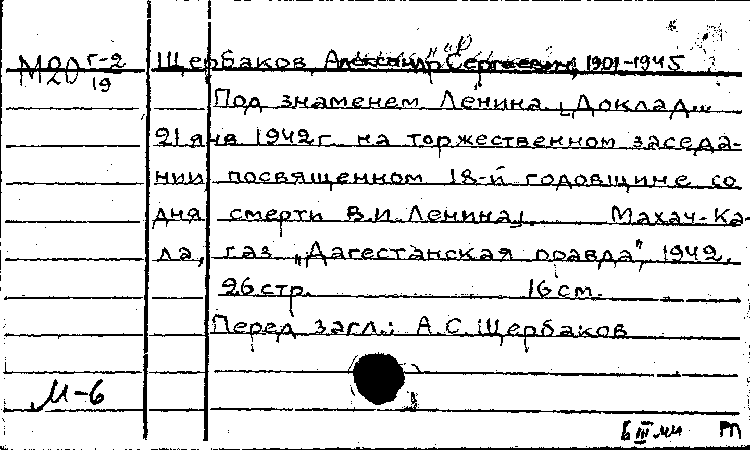 М20 г-2/19
Щербаков, Александр Сергеевич, 1901-1945
Под знаменем Ленина. [Доклад...
21 янв 1942г. на торжественном заседа-
нии посвященном 18-й годовщине со
дня смерти В.И.Ленина]. Махач-Ка-
ла, газ „Дагестанская правда", 1942.
26 стр. 16 см.
Перед загл.: А.С.Щербаков
М-6